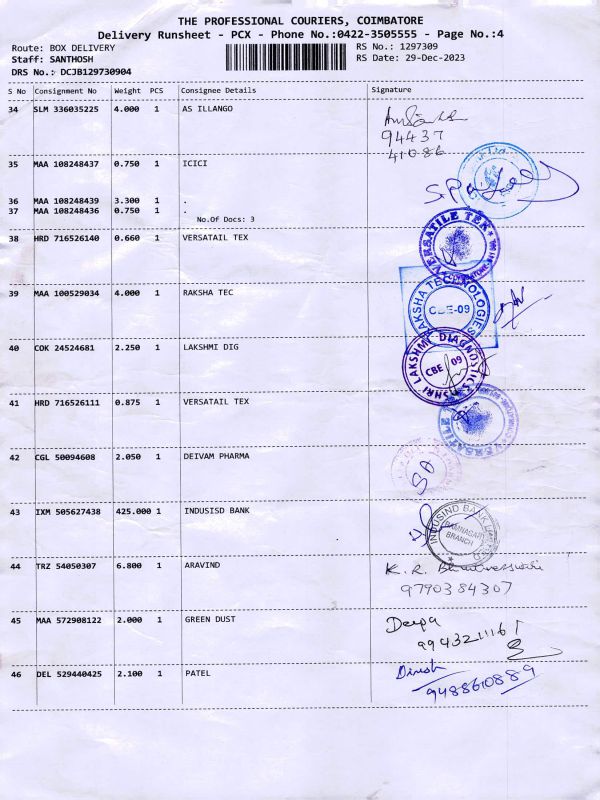 THE PROFESSIONAL COURIERS, COIMBATORE
Delivery Runsheet - PCX - Phone No.:0422-3505555 - Page No.:4
Route: BOX DELIVERY RS No.: 1297309
Staff: SANTHOSH RS Date: 29-Dec-2023
DRS No.: DCJB129730904
S No Consignment No Weight PCS Consignee Details Signature
34 SLM 336035225 4.000 1 AS ILLANGO
94437
41086
35 MAA 108248437 0.750 1 ICICI
36 MAA 108248439 3.300 1 .
37 MAA 108248436 0.750 1 .
No.Of Docs: 3
38 HRD 716526140 0.660 1 VERSATAIL TEX
VERSATILE TEK
39 MAA 100529034 4.000 1 RAKSHA TEC
RAKSHA TECHNOLOGIES
CBE-09
40 COK 24524681 2.250 1 LAKSHMI DIG
SHRI LAKSHMI DIAGNOSTICS
CBE 09
41 HRD 716526111 0.875 1 VERSATAIL TEX
VERSATILE
42 CGL 50094608 2.050 1 DEIVAM PHARMA
43 IXM 505627438 425.000 1 INDUSISD BANK
INDUSIND BANK LIMITED
RAMNAGAR
BRANCH
44 TRZ 54050307 6.800 1 ARAVIND
K. R. Bhuvaneswari
9790384307
45 MAA 572908122 2.000 1 GREEN DUST
Deepa
9943211161
46 DEL 529440425 2.100 1 PATEL
Dinesh
9488610889